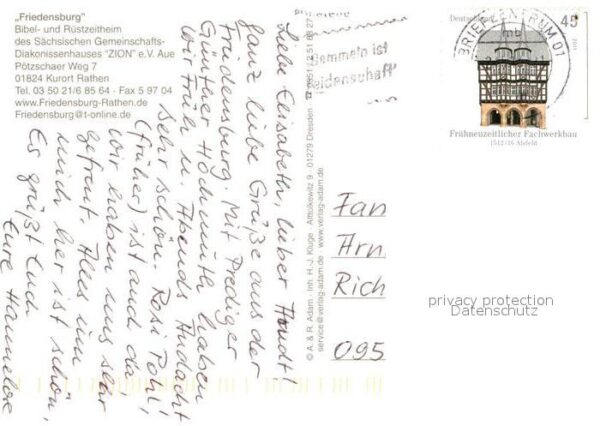 „Friedensburg"
Bibel- und Rüstzeitheim
des Sächsischen Gemeinschafts-
Diakonissenhauses "ZION" e.V. Aue
Pötzschaer Weg 7
01824 Kurort Rathen
Tel. 03 50 21/6 85 64 · Fax 5 97 04
www.Friedensburg-Rathen.de
Friedensburg@t-online.de
Liebe Elisabeth, lieber
ganz liebe Grüße aus der
Friedensburg. Mit Prediger
Günther Hohmuth haben
wir Früh u. Abends Andacht
sehr schön. Rosi Pohl,
(früher) ist auch da
wir haben uns sehr
gefreut. Alles um
mich her ist schön,
Es grüßt Euch
Eure Hannelore
© A. & R. Adam · Inh. H.-J. Kluge · Altlockwitz 9 · 01279 Dresden
service@verlag-adam.de · www.verlag-adam.de
Sammeln ist
Leidenschaft
BRIEFZENTRUM 01
mb
Deutschland
45
Frühneuzeitlicher Fachwerkbau
1512/16 Alsfeld
Fam
Arn
Rich
095
privacy protection
Datenschutz